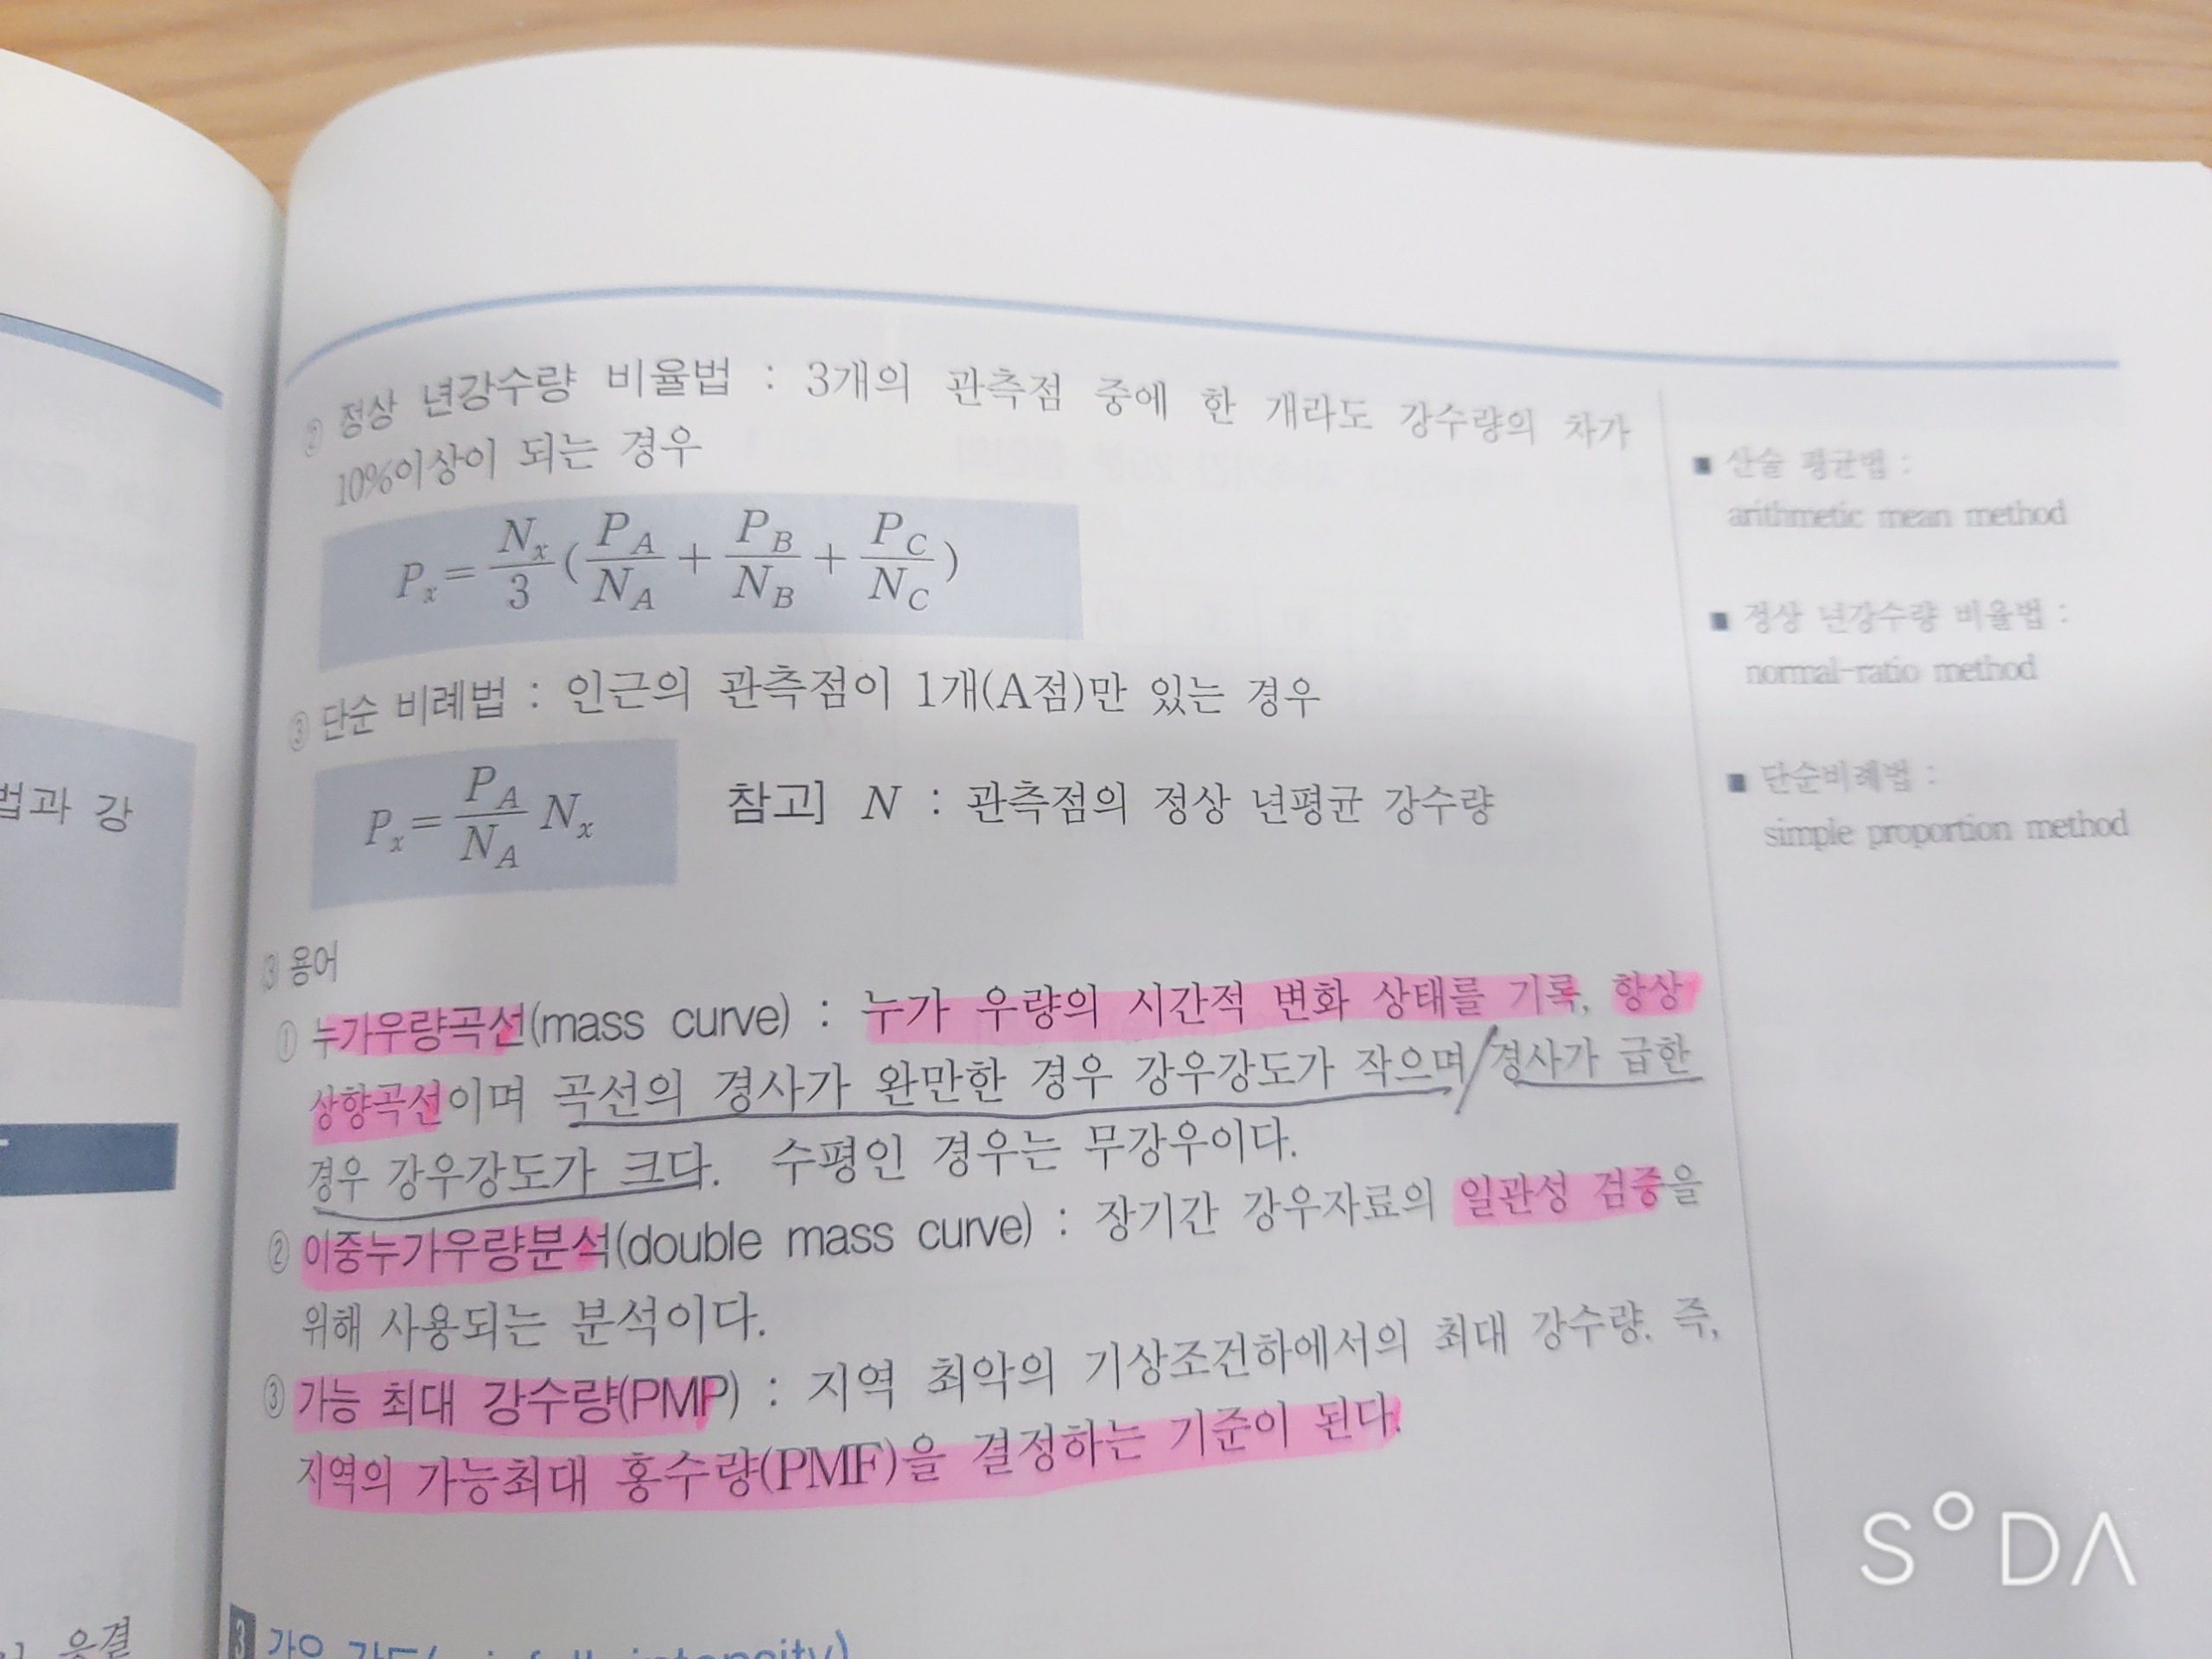 ② 정상 년강수량 비율법 : 3개의 관측점 중에 한 개라도 강수량의 차가
10%이상이 되는 경우
Pₓ = Nₓ/3 (P_A/N_A + P_B/N_B + P_C/N_C)
③ 단순 비례법 : 인근의 관측점이 1개(A점)만 있는 경우
Pₓ = P_A/N_A Nₓ 참고] N : 관측점의 정상 년평균 강수량
3 용어
① 누가우량곡선(mass curve) : 누가 우량의 시간적 변화 상태를 기록, 항상
상향곡선이며 곡선의 경사가 완만한 경우 강우강도가 작으며/경사가 급한
경우 강우강도가 크다. 수평인 경우는 무강우이다.
② 이중누가우량분석(double mass curve) : 장기간 강우자료의 일관성 검증을
위해 사용되는 분석이다.
③ 가능 최대 강수량(PMP) : 지역 최악의 기상조건하에서의 최대 강수량. 즉,
지역의 가능최대 홍수량(PMF)을 결정하는 기준이 된다.
3
■ 산술 평균법 :
arithmetic mean method
■ 정상 년강수량 비율법 :
normal-ratio method
■ 단순비례법 :
simple proportion method
법과 강
SODA